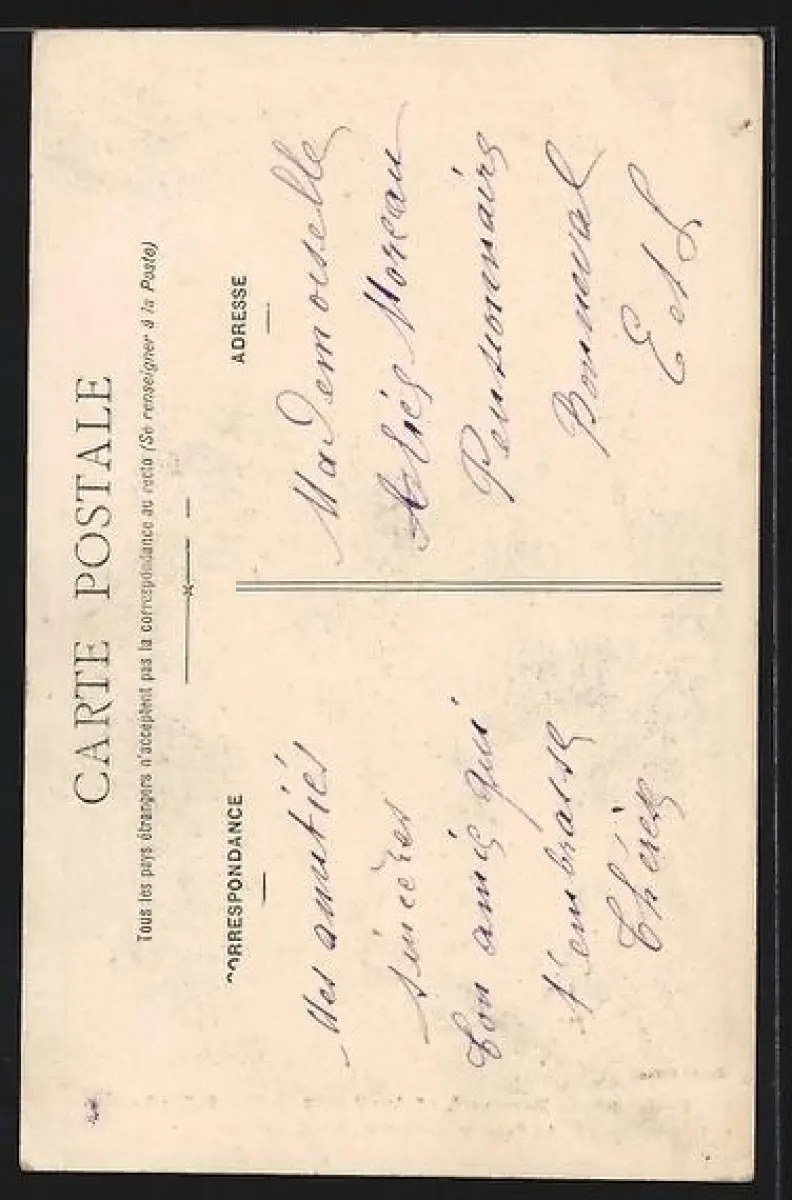 CARTE POSTALE
Tous les pays étrangers n'acceptent pas la correspondance au recto (Se renseigner à la Poste)
CORRESPONDANCE
Mes amitiés
sincères
Ton amie qui
t'embrasse
Thérèse
ADRESSE
Mademoiselle
Moreau
Pensionnaire
Bonneval
E et L